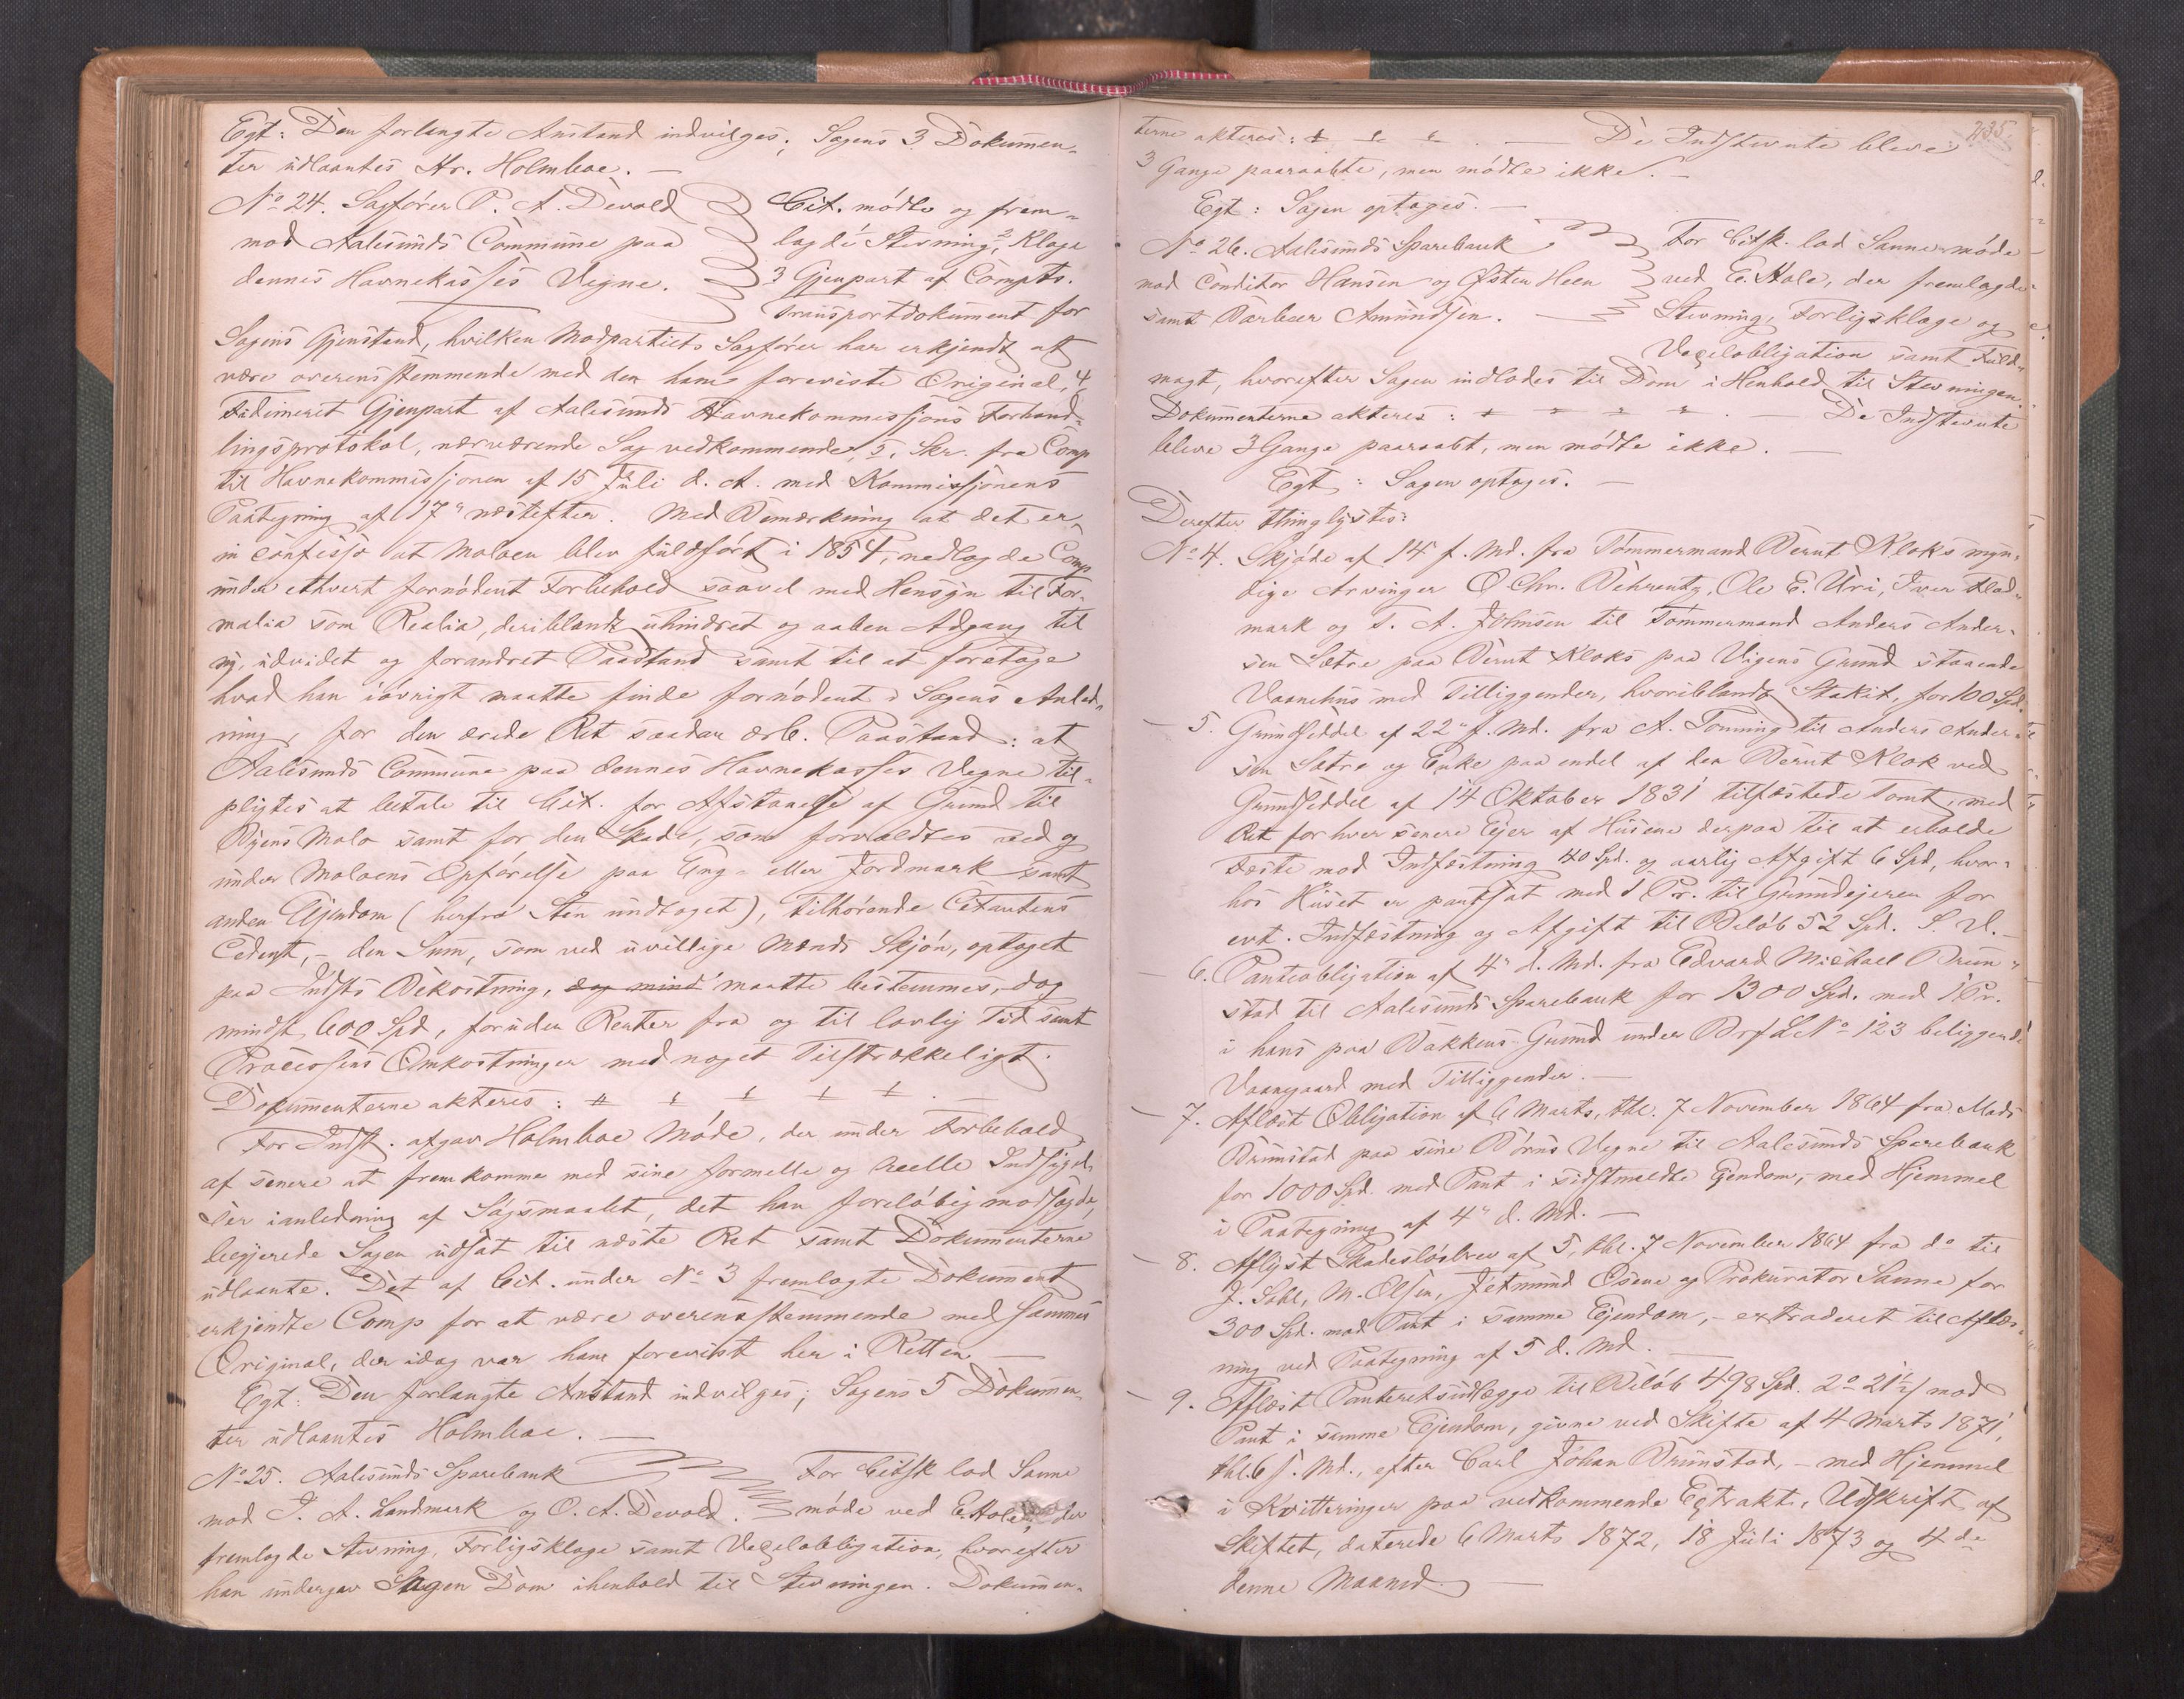 Egt: Den forlangte Anstand indvilges; Sagens 3 Dokumen-
ter udlaantes Hr. Holmboe. —
No 24. Sagfører P. A. Devold
mod Aalesunds Commune paa
dennes Havnekasses Vegne.
Cit. mødte og frem-
lagde Stevning, 2 Klage
3 Gjenpart af Compts.
Transportdokument for
Sagens Gjenstand, hvilken Modpartiets Sagfører har erkjendt at
være overensstemmende med den ham foreviste Original, 4,
Fidimeret Gjenpart af Aalesunds Havnekommissjons Forhand-
lingsprotokol, nærværende Sag vedkommende, 5, Skr. fra Comp
til Havnekommissjonen af 15 Juli d. A. med Kommissjonens
Paategning af 17" næstefter. Med Bemærkning at det er
in confesso at Moloen blev fuldført i 1854, nedlagde Comp
under ethvert fornødent Forbehold saavel med Hensyn til For-
malia som Realia, deriblandt uhindret og aaben Adgang til
ny, udvidet og forandret Paastand samt til at foretage
hvad han iøvrigt maatte finde fornødent i Sagens Anled-
ning, for den ærede Ret saadan ærb. Paastand: at
Aalesunds Commune paa dennes Havnekasses Vegne til-
pligtes at betale til Cit. for Afstaaelse af Grund til
Byens Molo samt for den Skade, som forvoldtes ved og
under Moloens Opførelse paa Eng- eller Jordmark samt
anden Ejendom (herfra Sten undtaget), tilhørende Citantens
Cedent, - den Sum, som ved uvillige Mænds Skjøn, optaget
paa Indsts Bekostning, dog mind maatte bestemmes, dog
mindst 600 Spd, foruden Renter fra og til lovlig Tid samt
Processens Omkostninger med noget Tilstrækkeligt.
Dokumenterne akteres:
For Indst. afgav Holmboe Møde, der under Forbehold
af senere at fremkomme med sine formelle og reelle Indsigel-
ser ianledning af Søgsmaalet, det han foreløbig modsagde,
begjerede Sagen udsat til næste Ret samt Dokumenterne
udlaante. Det af Cit. under No 3 fremlagte Dokument
erkjendte Comp for at være overensstemmende med sammes
Original, der idag var ham forevist her i Retten. —
Egt: Den forlangte Anstand indvilges; Sagens 5 Dokumen-
ter udlaantes Holmboe. —
No 25. Aalesunds Sparebank
mod J. A. Landmark og O. A. Devold.
For Citsk lod Sanne
møde ved E. Hole, der
fremlagde Stevning, Forligsklage samt Vexelobligation, hvorefter
han undergav Sagen Dom ihenhold til Stevningen. Dokumen-
235.
terne akteres: — De Indstevnte bleve
3 Gange paaraabte, men mødte ikke. —
Egt: Sagen optages. —
No 26. Aalesunds Sparebank
mod Conditor Hansen og Østen Heen
samt Barber Amundsen.
For Citsk. lod Sanne møde
ved E. Hole, der fremlagde
Stevning, Forligsklage og
Vexelobligation samt Fuld-
magt, hvorefter Sagen indlodes til Dom i Henhold til Stevningen.
Dokumenterne akteres: De Indstevnte
bleve 3 Gange paaraabt, men mødte ikke. —
Egt: Sagen optages. —
Derefter thinglystes:
No 4. Skjøde af 14 f. Md. fra Tømmermand Bernt Kloks myn-
dige Arvinger O. Chr. Behrentz, Ole E. Uri, Iver Flad-
mark og T. A. Johnsen til Tømmermand Anders Ander-
sen Sætre paa Bernt Kloks paa Vigens Grund staaende
Vaanehus med Tilliggender, hvoriblandt Stakit, for 100 Spd.
— 5. Grundseddel af 22" f. Md. fra A. Tonning til Anders Ander-
sen Sætre og Enke paa endel af den Bernt Klok ved
Grundseddel af 14 Oktober 1831 tilfæstede Tomt, med
Ret for hver senere Ejer af Husene derpaa til at erholde
Fæste mod Indfæstning 40 Spd. og aarlig Afgift 6 Spd, hvor-
hos Huset er pantsat med 1 Pr. til Grundejeren for
evt. Indfæstning og Afgift til Beløb 52 Spd. S. V. —
6. Panteobligation af 4" d. Md. fra Edvard Michael Brun-
stad til Aalesunds Sparebank for 1300 Spd. med 1 Pr.
i hans paa Bakkens Grund under Brf. L. No 123 beliggende
Vaangaard med Tilliggender. —
— 7. Aflæst Obligation af 6 Marts, thl. 7 November 1864 fra Mads
Brunstad paa sine Børns Vegne til Aalesunds Sparebank
for 1000 Spd. med Pant i sidstmeldte Ejendom, - med Hjemmel
i Paategning af 4" d. Md. —
— 8. Aflyst Skadesløsbrev af 5, thl. 7 November 1864 fra do til
J. Dahl, M. Olsen, Jetmund Osene og Prokurator Sanne for
300 Spd. mod Pant i samme Ejendom, - extraderet til Aflæs-
ning ved Paategning af 5 d. Md. —
— 9. Aflæst Panteretsudlægge til Beløb 498 Spd. 2o 21½ s mod
Pant i samme Ejendom, givne ved Skifte af 4 Marts 1871,
thl. 6 s. Md., efter Carl Johan Brunstad, - med Hjemmel
i Kvitteringer paa vedkommende Extrakt-Udskrift af
Skiftet, daterede 6 Marts 1872, 18 Juli 1873 og 4de
denne Maaned. —